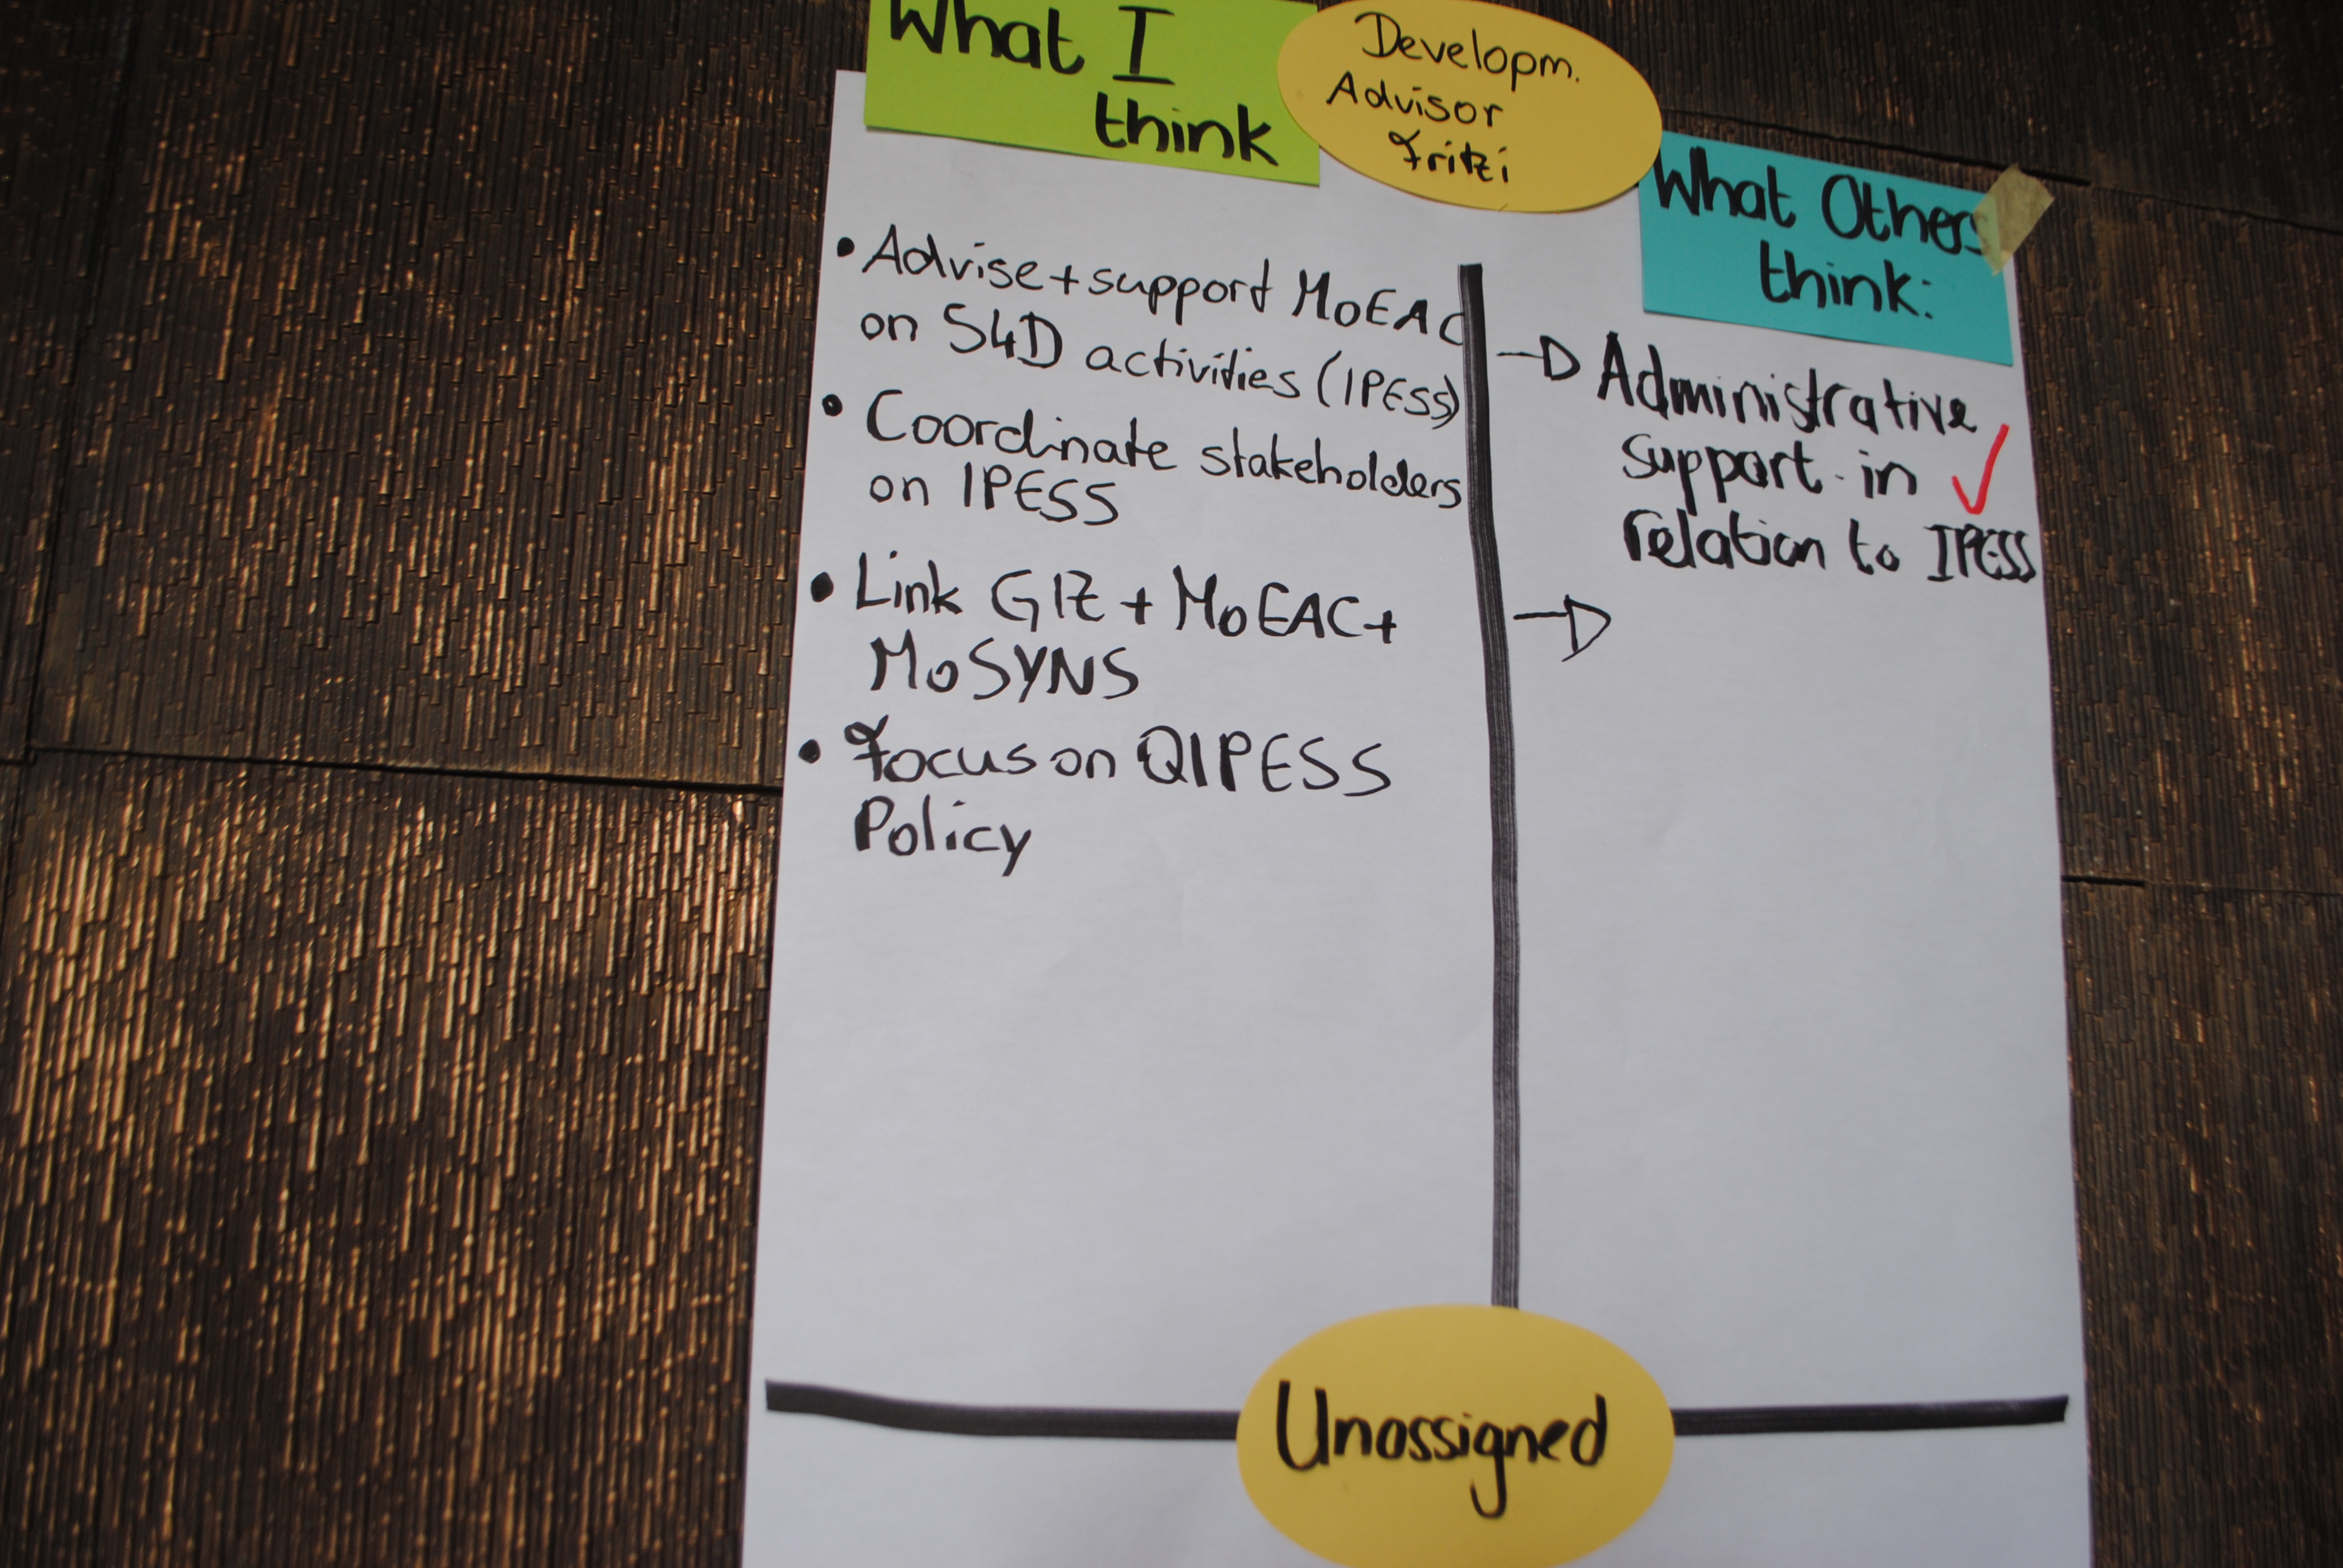 What I
think
Developm.
Advisor
Fritzi
What Others
think:
• Advise + support MoEAC
on S4D activities (IPESS)
• Coordinate stakeholders
on IPESS
• Link GIZ + MoEAC +
MoSYNS
• Focus on QIPESS
Policy
→ Administrative
support in ✓
relation to IPESS
→
Unassigned